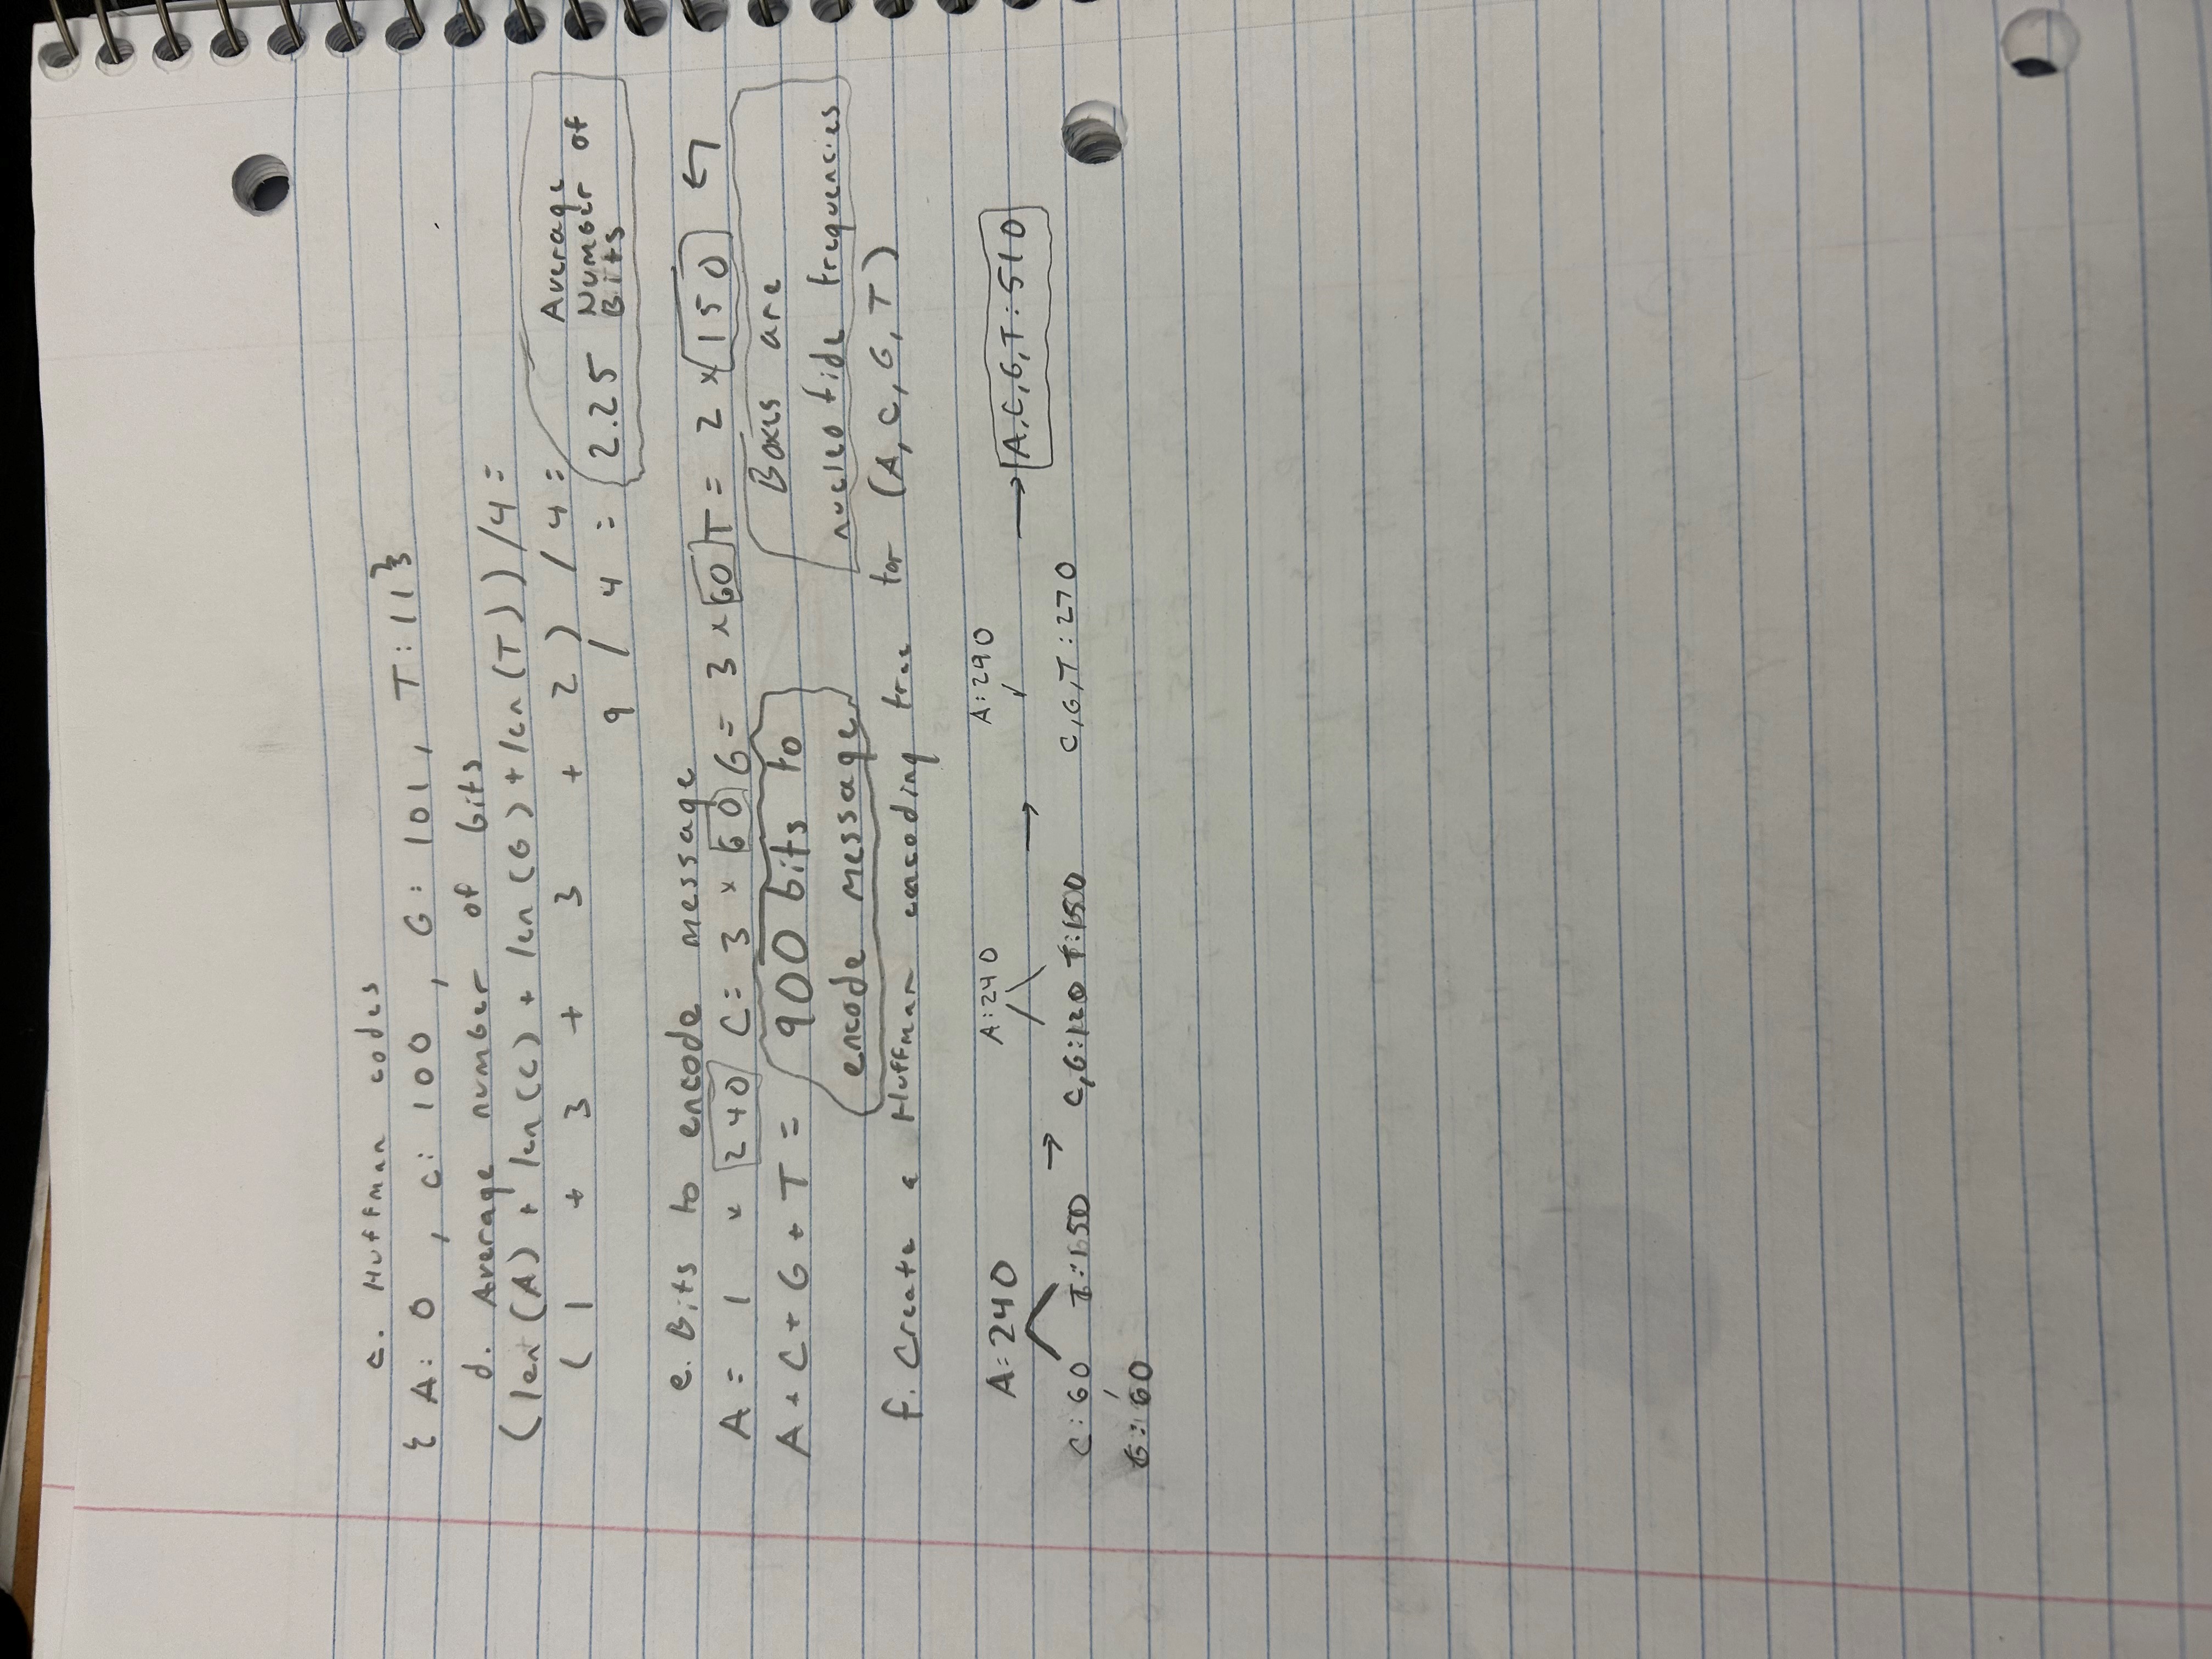 c. Huffman codes
{ A: 0 , C: 100 , G: 101, T: 11}
d. Average number of bits
(len(A) + len(C) + len(G) + len(T)) /4 =
( 1 + 3 + 3 + 2 ) / 4 =
9 / 4 = 2.25 Average Number of Bits
e. Bits to encode message
A = 1 × 240 C = 3 × 60 G = 3 × 60 T = 2 × 150 ↩
A + C + G + T = 900 bits to encode message
Boxes are nucleotide frequencies
f. Create a Huffman encoding tree for (A, C, G, T)
A: 240
C: 60 T: 150
G: 60
→
A: 240
C,G: 120 T: 150
→
A: 240
C,G,T: 270
→
A,C,G,T: 510